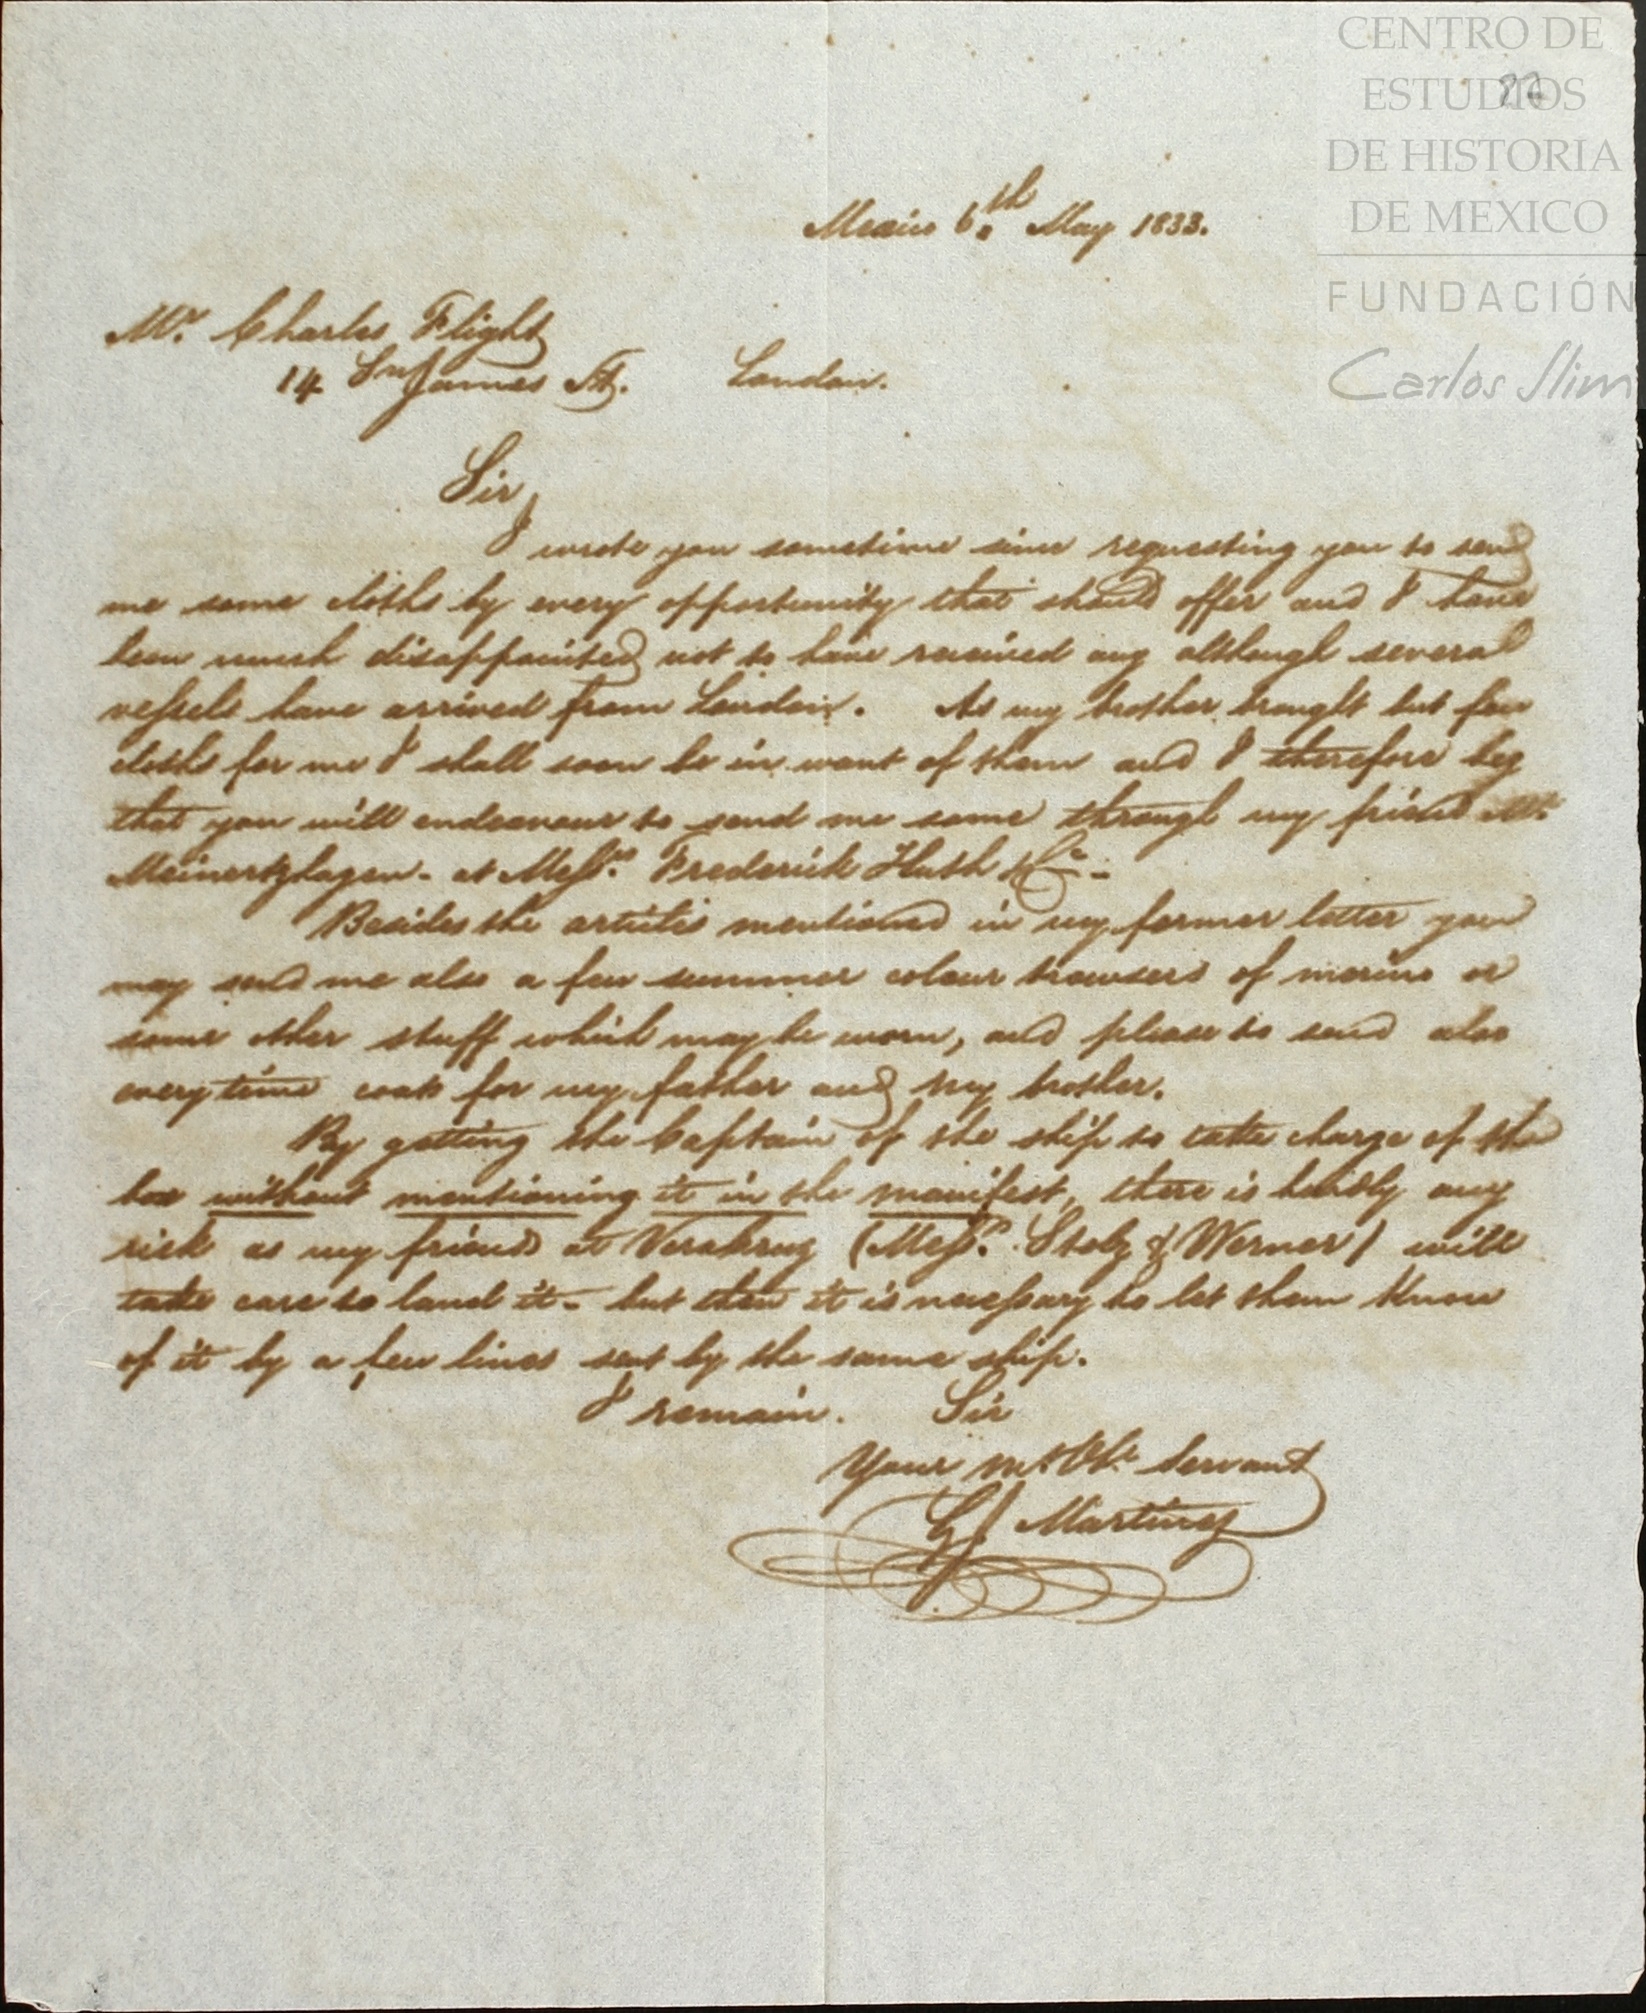 CENTRO DE
ESTUDIOS
DE HISTORIA
DE MEXICO
FUNDACIÓN
Carlos Slim
Mexico 6th May 1833.
Mr. Charles Flight
14 St James St. London.
Sir,
I wrote you sometime since requesting you to send
me some cloths by every opportunity that should offer and I have
been much disappointed not to have received any although several
vessels have arrived from London. As my brother brought but few
cloths for me I shall soon be in want of them and I therefore beg
that you will endeavour to send me some through my friend Mr.
Meinertzhagen. at Messrs. Frederick Huth & Co.
Besides the articles mentioned in my former letter you
may send me also a few summer colour trowsers of merino or
some other stuff which may be worn, and please to send also
every time coats for my father and my brother.
By getting the Captain of the ship to take charge of the
box without mentioning it in the manifest, there is hardly any
risk as my friends at Verakruz (Messrs. Stolz & Werner) will
take care to land it. but then it is necessary to let them know
of it by a few lines sent by the same ship.
I remain. Sir
Your mt. Obt. Servant
Martinez